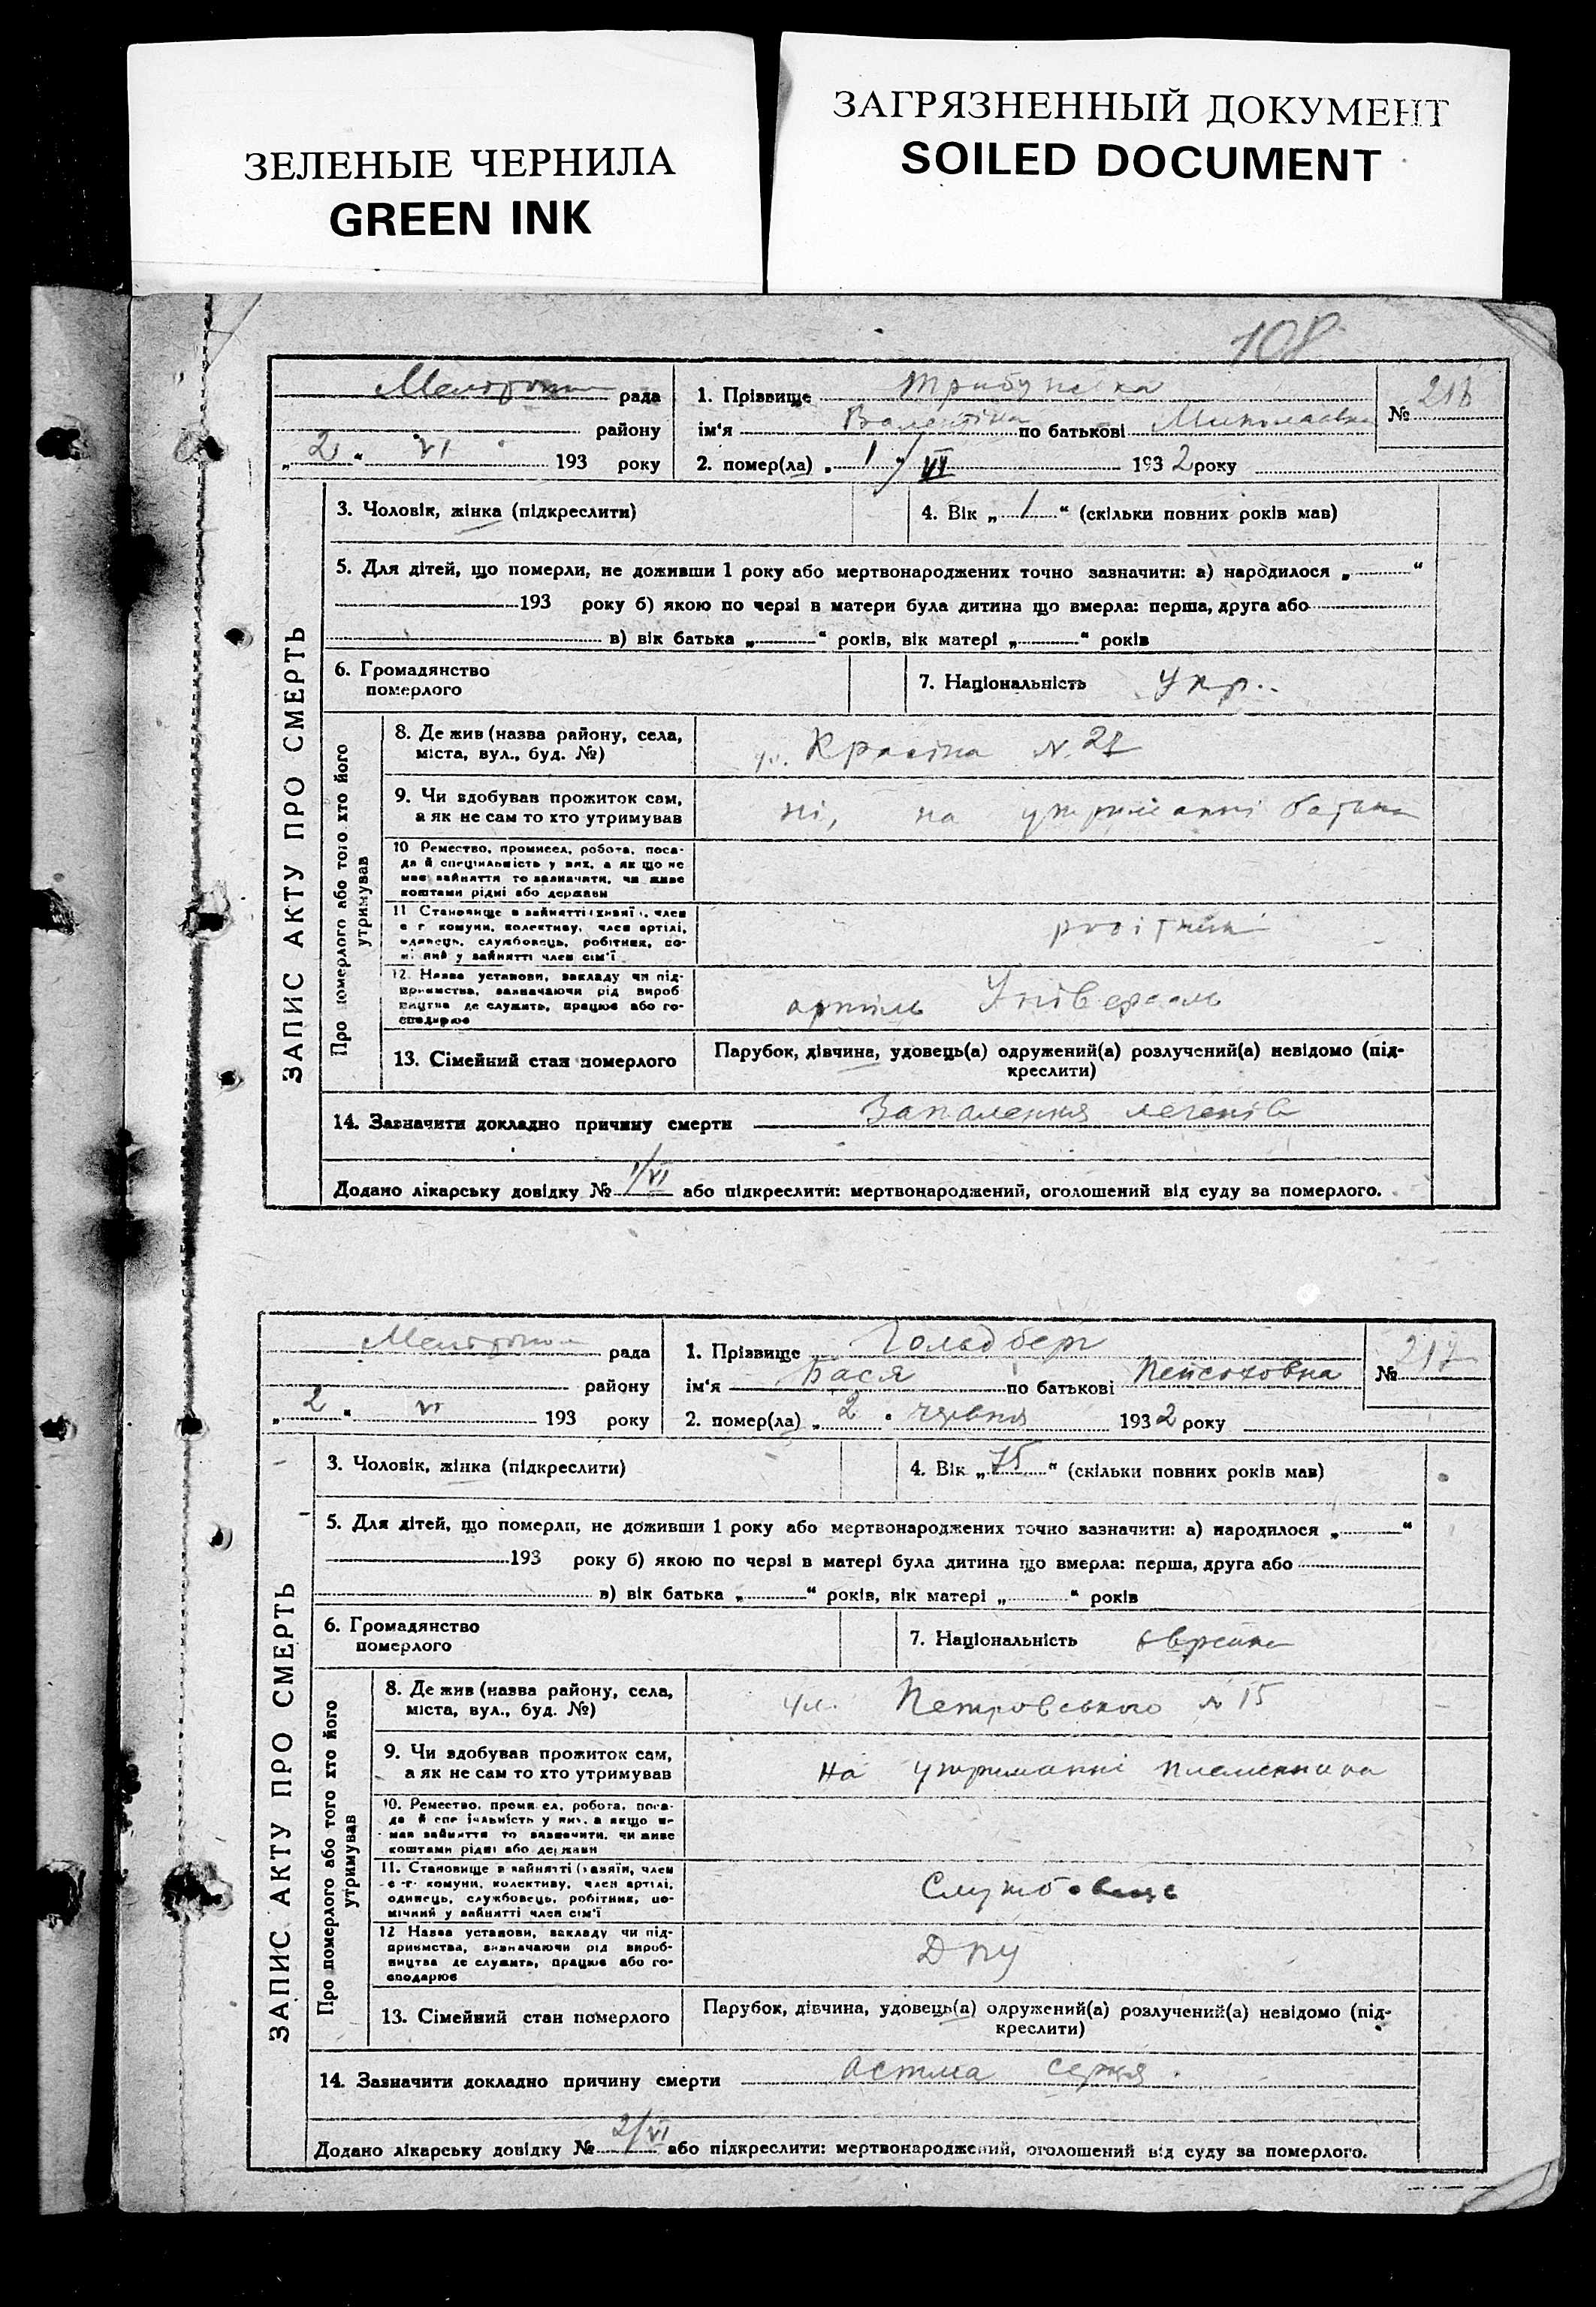 ЗЕЛЕНЫЕ ЧЕРНИЛА
GREEN INK
ЗАГРЯЗНЕННЫЙ ДОКУМЕНТ
SOILED DOCUMENT
108
ЗАПИС АКТУ ПРО СМЕРТЬ
рада
району
„ 2 “ VI 193 року
1. Прізвище
ім'я Валентіна по батькові Миколаевна
2. помер(ла) „ 1 “ VI 1932 року
№ 216
3. Чоловік, жінка (підкреслити)
4. Вік „ 1 “ (скільки повних років мав)
5. Для дітей, що померли, не доживши 1 року або мертвонароджених точно зазначити: а) народилося „ “
193 року б) якою по черзі в матери була дитина що вмерла: перша, друга або
в) вік батька „ “ років, вік матері „ “ років
6. Громадянство
померлого
7. Національність Укр.
Про померлого або того хто його
утримував
8. Де жив (назва району, села,
міста, вул., буд. №)
ул. Красіна N
9. Чи здобував прожиток сам,
а як не сам то хто утримував
ні, на утриманні батька
10 Ремество, промисел, робота, поса-
да й спеціяльність у них, а як що не
мав зайняття то зазначити, чи живе
коштами рідні або держави
11 Становище в зайнятті член
комуни, колективу, член артілі,
одинець, службовець, робітник, по-
у зайнятті член сім'ї
12. Назва установи, закладу чи під-
приємства, зазначаючи рід вироб-
ництва де служить, працює або го-
сподарює
артіль Універсаль
13. Сімейний стан померлого
Парубок, дівчина, удовець(а) одружений(а) розлучений(а) невідомо (під-
креслити)
14. Зазначити докладно причину смерти Запалення легенів
Додано лікарську довідку № 1/VI або підкреслити: мертвонароджений, оголошений від суду за померлого.
ЗАПИС АКТУ ПРО СМЕРТЬ
рада
району
„ 2 “ VI 193 року
1. Прізвище Гольдберг
ім'я Бася по батькові Пейсоховна
2. помер(ла) „ 2 “ червня 1932 року
№ 217
3. Чоловік, жінка (підкреслити)
4. Вік „ 75 “ (скільки повних років мав)
5. Для дітей, що померли, не доживши 1 року або мертвонароджених точно зазначити: а) народилося „ “
193 року б) якою по черзі в матері була дитина що вмерла: перша, друга або
в) вік батька „ “ років, вік матері „ “ років
6. Громадянство
померлого
7. Національність
Про померлого або того хто його
утримував
8. Де жив (назва району, села,
міста, вул., буд. №)
ул. Петровського № 15
9. Чи здобував прожиток сам,
а як не сам то хто утримував
на утриманні племенника
10. Ремество, промисел, робота, поса-
да й спеціяльність у них, а якщо не
мав зайняття то зазначити, чи живе
коштами рідні або держави
11. Становище в зайнятті (хазяїн, член
с-г комуни, колективу, член артілі,
одинець, службовець, робітник, по-
мічний у зайнятті член сім'ї
Службовець
12 Назва установи, закладу чи під-
приємства, зазначаючи рід вироб-
ництва де служить, працює або го-
сподарює
ДПУ
13. Сімейний стан померлого
Парубок, дівчина, удовець(а) одружений(а) розлучений(а) невідомо (під-
креслити)
14. Зазначити докладно причину смерти астма серця.
Додано лікарську довідку № 2/VI або підкреслити: мертвонароджений, оголошений від суду за померлого.